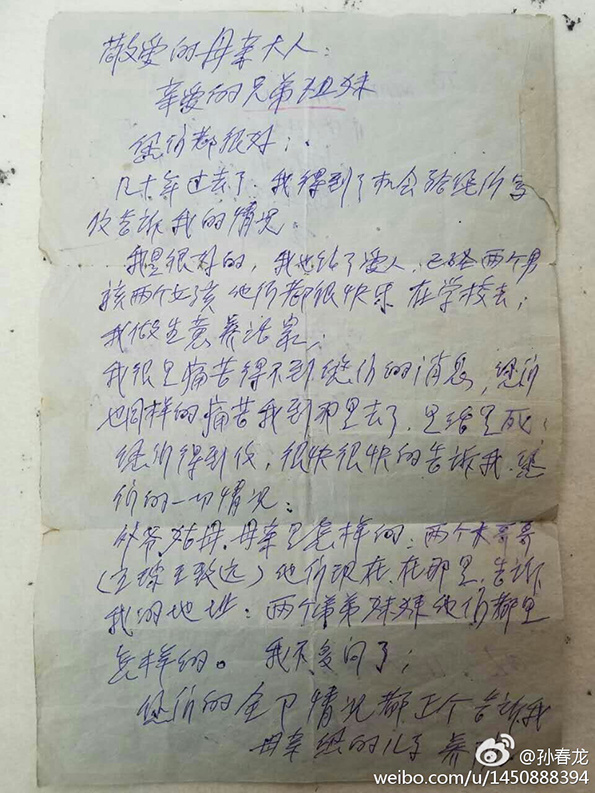 敬爱的母亲大人：
亲爱的兄弟姐妹
您们都很好；
几十年过去了，我得到了机会给您们写
信告诉我的情况。
我是很好的，我也结了爱人，已经两个男
孩两个女孩他们都很快乐在学校去；
我做生意养活家；
我很是痛苦得不到您们的消息，您们
也同样的痛苦我到那里去了，是活是死；
您们得到信，很快很快的告诉我，您
们的一切情况：
外爷姑母、母亲是怎样的，两个大哥哥
（王琮王致远）他们现在，在那里，告诉
我的地址：两个弟弟妹妹他们都是
怎样的。 我不多问了；
您们的全卩情况都正个告诉我
母亲您的儿子
@孙春龙
weibo.com/u/1450888394